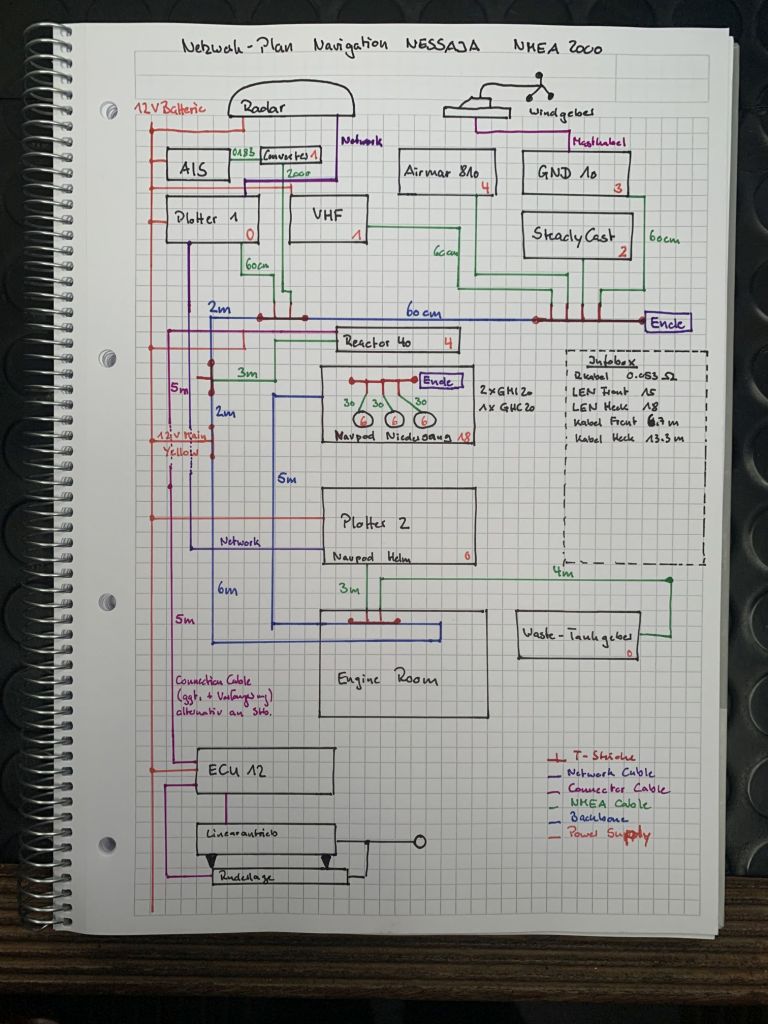 Netzwerk-Plan Navigation NESSAJA NMEA 2000
12V Batterie
Radar
Windgeber
Network
Mastkabel
AIS
0183
Converter 1
2000
Airmar 810
4
GND 10
3
Plotter 1
0
VHF
1
SteadyCast
2
60cm
60cm
60cm
2m
60cm
Ende
Reactor 40
4
3m
5m
2m
Ende
30 30 30
6 6 6
Navpod Niedergang 18
2x GMI 20
1x GHC 20
Infobox
Rkabel 0.053 Ω
LEN Front 15
LEN Heck 18
Kabel Front 6.7 m
Kabel Heck 13.3 m
12V Main
Yellow
5m
Plotter 2
Navpod Helm
0
Network
6m
3m
4m
5m
Waste-Tankgeber
0
Engine Room
Connection Cable
(ggf. + Verlängerung)
alternativ an Stb.
ECU 12
Linearantrieb
Ruderlage
T-Stücke
Network Cable
Connector Cable
NMEA Cable
Backbone
Power Supply